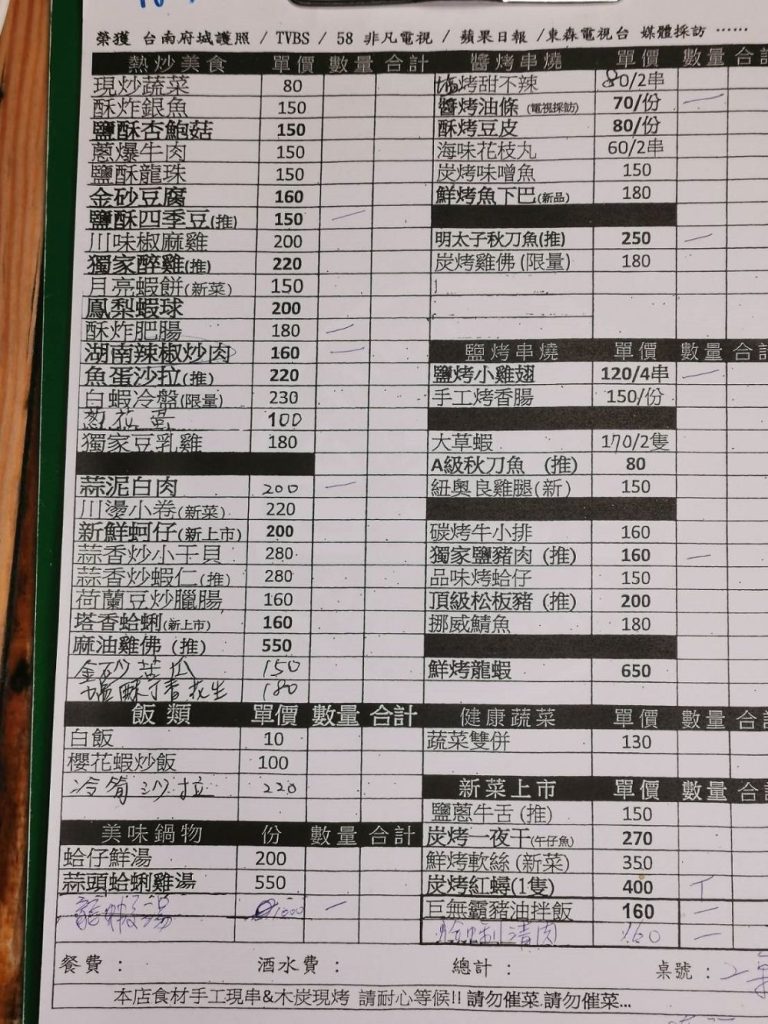 榮獲 台南府城護照 / TVBS / 58 非凡電視 / 蘋果日報 /東森電視台 媒體採訪 ……
熱炒美食 單價 數量 合計
現炒蔬菜 80
酥炸銀魚 150
鹽酥杏鮑菇 150
蔥爆牛肉 150
鹽酥龍珠 150
金砂豆腐 160
鹽酥四季豆(推) 150 一
川味椒麻雞 200
獨家醉雞(推) 220
月亮蝦餅(新菜) 150
鳳梨蝦球 200
酥炸肥腸 180 一
湖南辣椒炒肉 160 一
魚蛋沙拉(推) 220
白蝦冷盤(限量) 230
100
獨家豆乳雞 180
蒜泥白肉 200 一
川燙小卷(新菜) 220
新鮮蚵仔(新上市) 200
蒜香炒小干貝 280
蒜香炒蝦仁(推) 280
荷蘭豆炒臘腸 160
塔香蛤蜊(新上市) 160
麻油雞佛 (推) 550
金砂苦瓜 150
塩酥丁香花生 180
飯類 單價 數量 合計
白飯 10
櫻花蝦炒飯 100
冷筍沙拉 220
美味鍋物 份 數量 合計
蛤仔鮮湯 200
蒜頭蛤蜊雞湯 550
龍蝦湯 一
醬烤串燒 單價 數量 合計
烤甜不辣 80/2串
醬烤油條 (電視採訪) 70/份 一
酥烤豆皮 80/份
海味花枝丸 60/2串
炭烤味噌魚 150
鮮烤魚下巴(新品) 180
明太子秋刀魚(推) 250 一
炭烤雞佛 (限量) 180
鹽烤串燒 單價 數量 合計
鹽烤小雞翅 120/4串 一
手工烤香腸 150/份
大草蝦 170/2隻
A級秋刀魚 (推) 80
紐奧良雞腿(新) 150
碳烤牛小排 160
獨家鹽豬肉 (推) 160 一
品味烤蛤仔 150
頂級松板豬 (推) 200
挪威鯖魚 180
鮮烤龍蝦 650
健康蔬菜 單價 數量 合計
蔬菜雙併 130
新菜上市 單價 數量 合計
鹽蔥牛舌 (推) 150
炭烤一夜干(午仔魚) 270
鮮烤軟絲 (新菜) 350
炭烤紅蟳(1隻) 400
巨無霸豬油拌飯 160 一
160 一
餐費： 酒水費： 總計： 桌號：
本店食材手工現串&木炭現烤 請耐心等候!! 請勿催菜.請勿催菜...